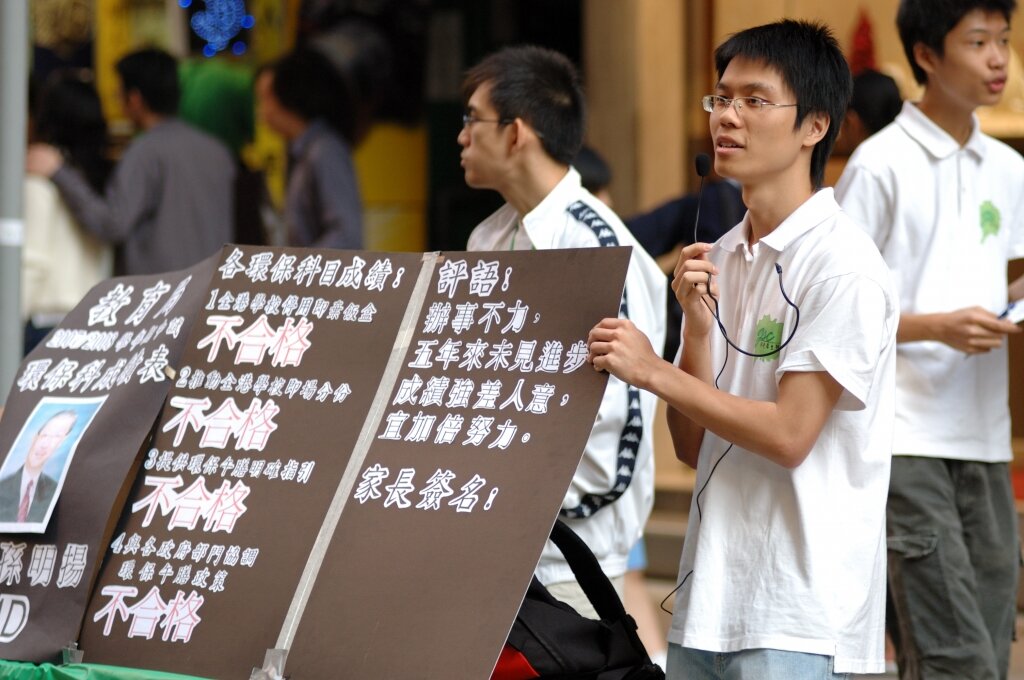 教育
環保科成績表
孫明揚
各環保科目成績:
1全港學校停用即棄飯盒
不合格
2推動全港學校即場分份
不合格
3提供環保午膳明確指引
不合格
4與各政府部門協調
環保午膳政策
不合格
評語:
辦事不力,
五年來未見進步
成績強差人意,
宜加倍努力。
家長簽名: